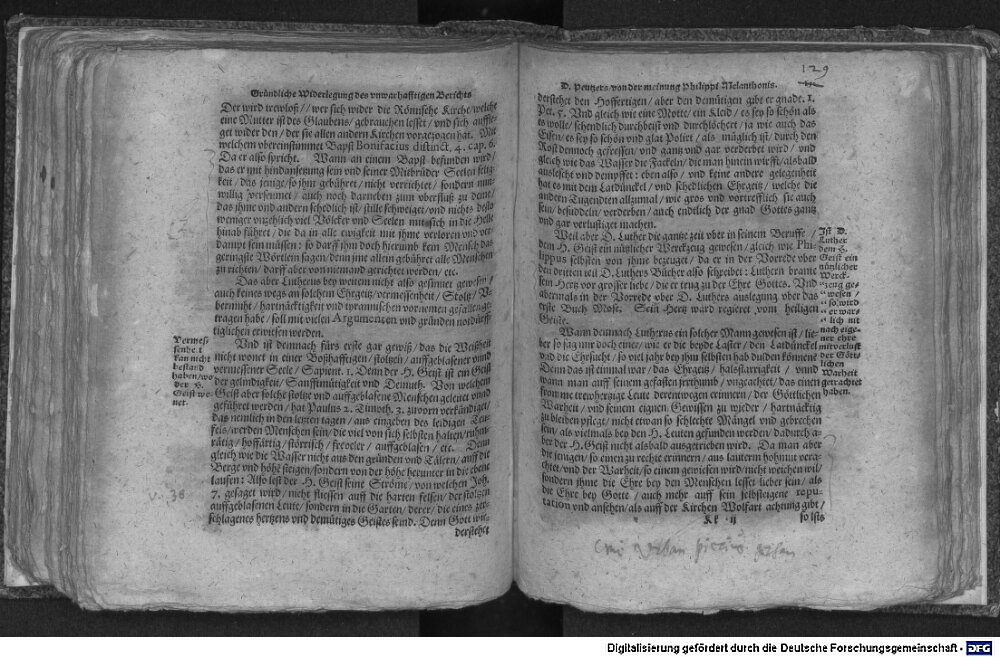 Gründliche Widerlegung des vnwarhafftigen Berichts
Der wird trewloß/ wer sich wider die Römische Kirche/welche
eine Mutter ist des Glaubens/ gebrauchen lesset/ vnd sich aufflei-
get wider den/ der sie allen andern Kirchen vorgezogen hat. Mit
welchem vbereinstimmet Bapst Bonifacius distinct. 4. cap. 6.
Da er also spricht. Wann an einem Bapst befunden wird/
das er mit hindansetzung sein vnd seiner Mitbrüder Seelen selig-
keit/ das jenige/so jhm gebühret/ nicht verrichtet/ sondern mut-
willig verseumet/ auch noch darneben zum vberfluß zu deme/
das jhme vnd andern schedlich ist/ stille schweiget/ vnd nichts desto
weniger vnzehlich viel Völcker vnd Seelen mit sich in die Helle
hinab führet/ die da in alle ewigkeit mit jhme verloren vnd ver-
dampt sein müssen: so darff jhn doch hierumb kein Mensch das
geringste Wörtlein sagen/ denn jme allein gebühret alle Menschen
zu richten/ darff aber von niemand gerichtet werden/ etc.
Das aber Lutherus bey weitem nicht also gesinnet gewesen/
auch keines wegs an solchem Ehrgeitz/ vermessenheit/ Stoltz/ V-
bermuht/ hartnäckigkeit vnd tyrannischen vornemen gefallen ge-
tragen habe/ soll mit vielen Argumenten vnd gründen notdürff-
tiglichen erwiesen werden.
Vnd ist demnach fürs erste gar gewiß/ das die Weißheit
nicht wonet in einer Boßhafftigen/ stoltzen/ auffgeblasener vnnd
vermessener Seele/ Sapient. 1. Denn der H. Geist ist ein Geist
der gelindigkeit/ Sanfftmütigkeit vnd Demuth. Von welchem
Geist aber solche stoltze vnd auffgeblasene Menschen geleitet vnnd
geführet werden/ hat Paulus 2. Timoth. 3. zuvorn verkündiget/
das nemlich in den letzten tagen/ aus eingeben des leidigen Teu-
fels/ werden Menschen sein/ die viel von sich selbsten halten/ ruhm-
rätig/ hoffärtig/ störrisch/ freveler/ auffgeblasen/ etc. Denn
gleich wie die Wasser nicht aus den gründen vnd Tälern/ auff die
Berge vnd höhe steigen/sondern von der höhe herunter in die ebene
lauffen: Also lest der H. Geist seine Ströme/ von welchen Joh.
7. gesaget wird/ nicht fliessen auff die harten felsen/ der stoltzen
auffgeblasenen Leute/ sondern in die Garten/ derer/ die eines zer-
schlagenes hertzens vnd demütiges Geistes seind. Denn Gott wie-
derstehet
Vermes-
senheit
kan nicht
bestand
haben/wo
der H.
Geist wo-
net.
v. 38
129
D. Peutzers von der meinung Philippi Melanthonis.
derstehet den Hoffertigen/ aber den demütigen gibt er gnade. 1.
Pet. 5. Vnd gleich wie eine Motte/ ein Kleid/ es sey so schön als
es wolle/ schendlich durchbeist vnd durchlöchert/ ja wie auch das
Eisen/ es sey so schön vnd glat Polirt/ als müglich ist/ durch den
Rost dennoch gefressen/ vnd gantz vnd gar verderbet wird/ vnd
gleich wie das Wasser die Fackeln/ die man hinein wirfft/ alsbald
auslescht vnd dempffet: eben also/ vnd keine andere gelegenheit
hat es mit dem Latdünckel/ vnd schedlichen Ehrgeitz/ welche die
andern Tugendten allzumal/ wie gros vnd vortrefflich sie auch
sein/ besuddeln/ verderben/ auch endtlich der gnad Gottes gantz
vnd gar verlustiget machen.
Weil aber D. Luther die gantze zeit vber in seinem Beruffe/
dem H. Geist ein nützlicher Werckzeug gewesen/ gleich wie Phi-
lippus selbsten von jhme bezeuget/ da er in der Vorrede vber
den dritten teil D. Luthers Bücher also schreibet: Luthern brante
sein Hertz vor grosser liebe/ die er trug zu der Ehre Gottes. Vnd
abermals in der Vorrede vber D. Luthers auslegung vber das
erste Buch Mose. Sein Hertz ward regieret vom heiligen
Geiste.
Wann demnach Lutherus ein solcher Mann gewesen ist/ lie-
ber so sag mir doch einer/ wie er die beyde Laster/ den Latdünckel
vnd die Ehrsucht/ so viel jahr bey jhm selbsten hab dulden können?
Denn das ist einmal war/ das Ehrgeitz/ halstarrigkeit/ vnnd
wann man auff seinem gefasten jrrthumb/ vngeachtet/ das einen
fromme trewhertzige Leute derentwegen erinnern/ der Göttlichen
Warheit/ vnd seinem eignen Gewissen zu wieder/ hartnäckig
zu bleiben pflege/ nicht etwan so schlechte Mängel vnd gebrechen
sein/ als vielmals bey den H. Leuten gefunden werden/ dadurch a-
ber der H. Geist nicht alsbald ausgetrieben wird. Da man aber
die jenigen/ so einen zu rechte erinnern/ aus lauterm hohmut verach-
tet/vnd der Warheit/ so einem gewiesen wird/nicht weichen wil/
sondern jhme die Ehre bey den Menschen lesset lieber sein/ als
die Ehre bey Gotte/ auch mehr auff sein selbsteigene repu-
tation vnd ansehen/ als auff der Kirchen Wolfart achtung gibt/
Kk ij
so ists
Ist D.
Luther
dem H.
Geist ein
nützlicher
Werck-
zeug ge-
wesen/
so wird
er war-
lich nit
nach eige-
ner ehre
mit verlust
der Gött-
lichen
Warheit
getrachtet
haben.
Digitalisierung gefördert durch die Deutsche Forschungsgemeinschaft - DFG